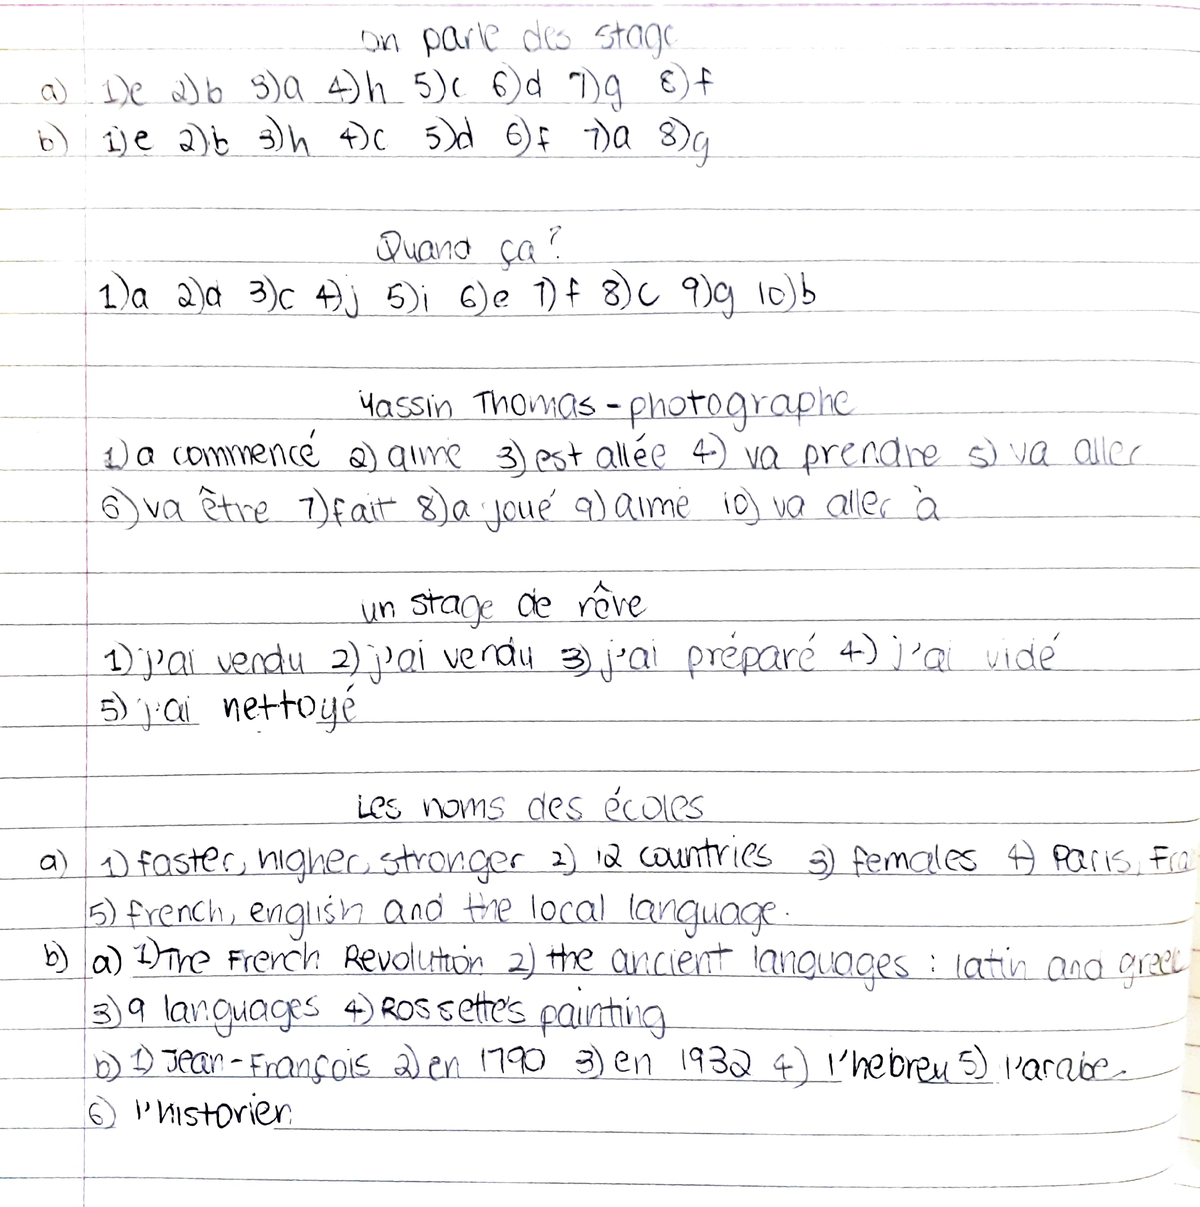 on parle des stage
a) 1)e 2)b 3)a 4)h 5)c 6)d 7)g 8)f
b) 1)e 2)b 3)h 4)c 5)d 6)f 7)a 8)g
Quand ça?
1)a 2)d 3)c 4)j 5)i 6)e 7)f 8)c 9)g 10)b
Yassin Thomas - photographe
1) a commencé 2) aime 3) est allée 4) va prendre 5) va aller
6) va être 7) fait 8) a joué 9) aime 10) va aller à
un stage de rêve
1) j'ai vendu 2) j'ai vendu 3) j'ai préparé 4) j'ai vidé
5) j'ai nettoyé
Les noms des écoles
a) 1) faster, higher, stronger 2) 12 countries 3) females 4) Paris, Fra
5) french, english and the local language.
b) a) 1) The French Revolution 2) the ancient languages : latin and greek
3) 9 languages 4) Rossette's painting
b) 1) Jean-François 2) en 1790 3) en 1932 4) l'hebreu 5) l'arabe
6) l'historien